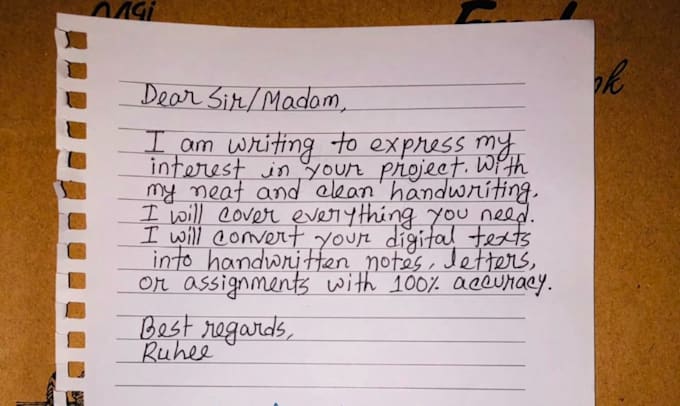 Dear Sir/Madam,
I am writing to express my
interest in your project. With
my neat and clean handwriting,
I will cover everything you need.
I will convert your digital texts
into handwritten notes, letters,
or assignments with 100% accuracy.
Best regards,
Ruhee